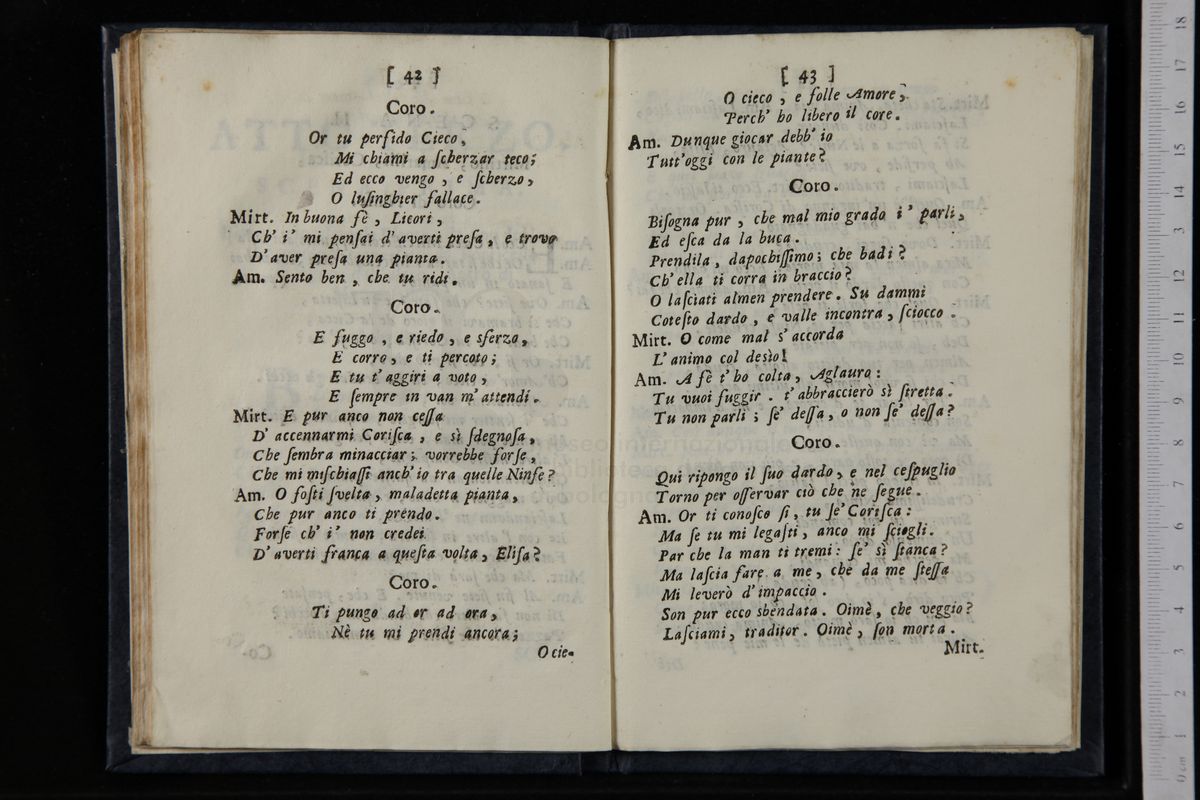 [ 42 ]
Coro.
Or tu perfido Cieco,
Mi chiami a ſcherzar teco;
Ed ecco vengo , e ſcherzo,
O luſinghier fallace.
Mirt. In buona fè , Licori ,
Ch' i' mi penſai d' averti preſa , e trovo
D' aver preſa una pianta.
Am. Sento ben , che tu ridi.
Coro.
E fuggo , e riedo , e sferzo,
E corro, e ti percoto;
E tu t' aggiri a voto ,
E ſempre in van m' attendi.
Mirt. E pur anco non ceſſa
D' accennarmi Coriſca , e sì ſdegnoſa,
Che ſembra minacciar; vorrebbe forſe,
Che mi miſchiaſſi anch' io tra quelle Ninfe ?
Am. O foſti ſvelta , maladetta pianta,
Che pur anco ti prendo.
Forſe ch' i' non credei
D' averti franca a queſta volta, Eliſa ?
Coro.
Ti pungo ad or ad ora,
Nè tu mi prendi ancora;
O cie-
[ 43 ]
O cieco , e folle Amore,
Perch' ho libero il core.
Am. Dunque giocar debb' io
Tutt'oggi con le piante?
Coro.
Biſogna pur , che mal mio grado i' parli,
Ed eſca da la buca.
Prendila , dapochiſſimo; che badi ?
Ch' ella ti corra in braccio?
O laſciati almen prendere. Su dammi
Coteſto dardo , e valle incontra, ſciocco .
Mirt. O come mal s' accorda
L' animo col desìo!
Am. A fè t' ho colta, Aglauro :
Tu vuoi fuggir . t' abbraccierò sì ſtretta .
Tu non parli ; ſe' deſſa, o non ſe' deſſa ?
Coro.
Qui ripongo il ſuo dardo, e nel ceſpuglio
Torno per oſſervar ciò che ne ſegue .
Am. Or ti conoſco ſì, tu ſe' Coriſca :
Ma ſe tu mi legaſti, anco mi ſciogli.
Par che la man ti tremi: ſe' sì ſtanca ?
Ma laſcia fare a me, che da me ſteſſa
Mi leverò d' impaccio .
Son pur ecco sbendata. Oimè, che veggio?
Laſciami, traditor. Oimè, ſon morta .
Mirt.